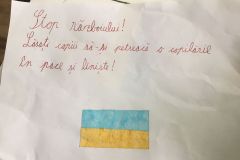 Stop războiului!
Lăsați copiii să-și petreacă o copilărie
în pace și liniște!